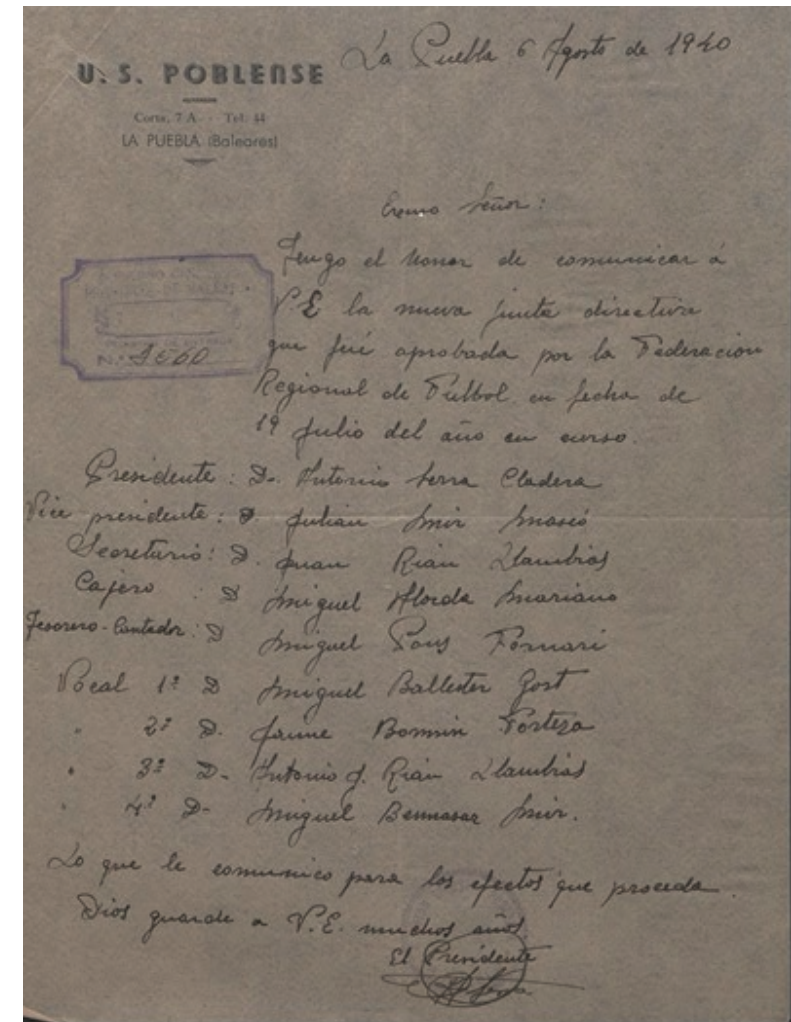 La Puebla 6 Agosto de 1940
U. S. POBLENSE
Corta, 7 A - Tel. 44
LA PUEBLA (Baleares)
Excmo Señor:
Tengo el honor de comunicar á
V.E la nueva junta directiva
que fué aprobada por la Federacion
Regional de Futbol en fecha de
19 Julio del año en curso.
Presidente: D. Antonio Serra Cladera
Vice presidente: D. Julián Mir
Secretario: D. Juan Llambias
Cajero : D Miguel Mariano
Tesorero-Contador: D Miguel Pons Fornari
Vocal 1º D Miguel Ballester Gost
" 2º D. Jaime Bonnin Forteza
" 3º D. Antonio J. Llambias
" 4º D. Miguel Bennasar Mir.
Lo que le comunico para los efectos que proceda.
Dios guarde a V.E. muchos años.
El Presidente